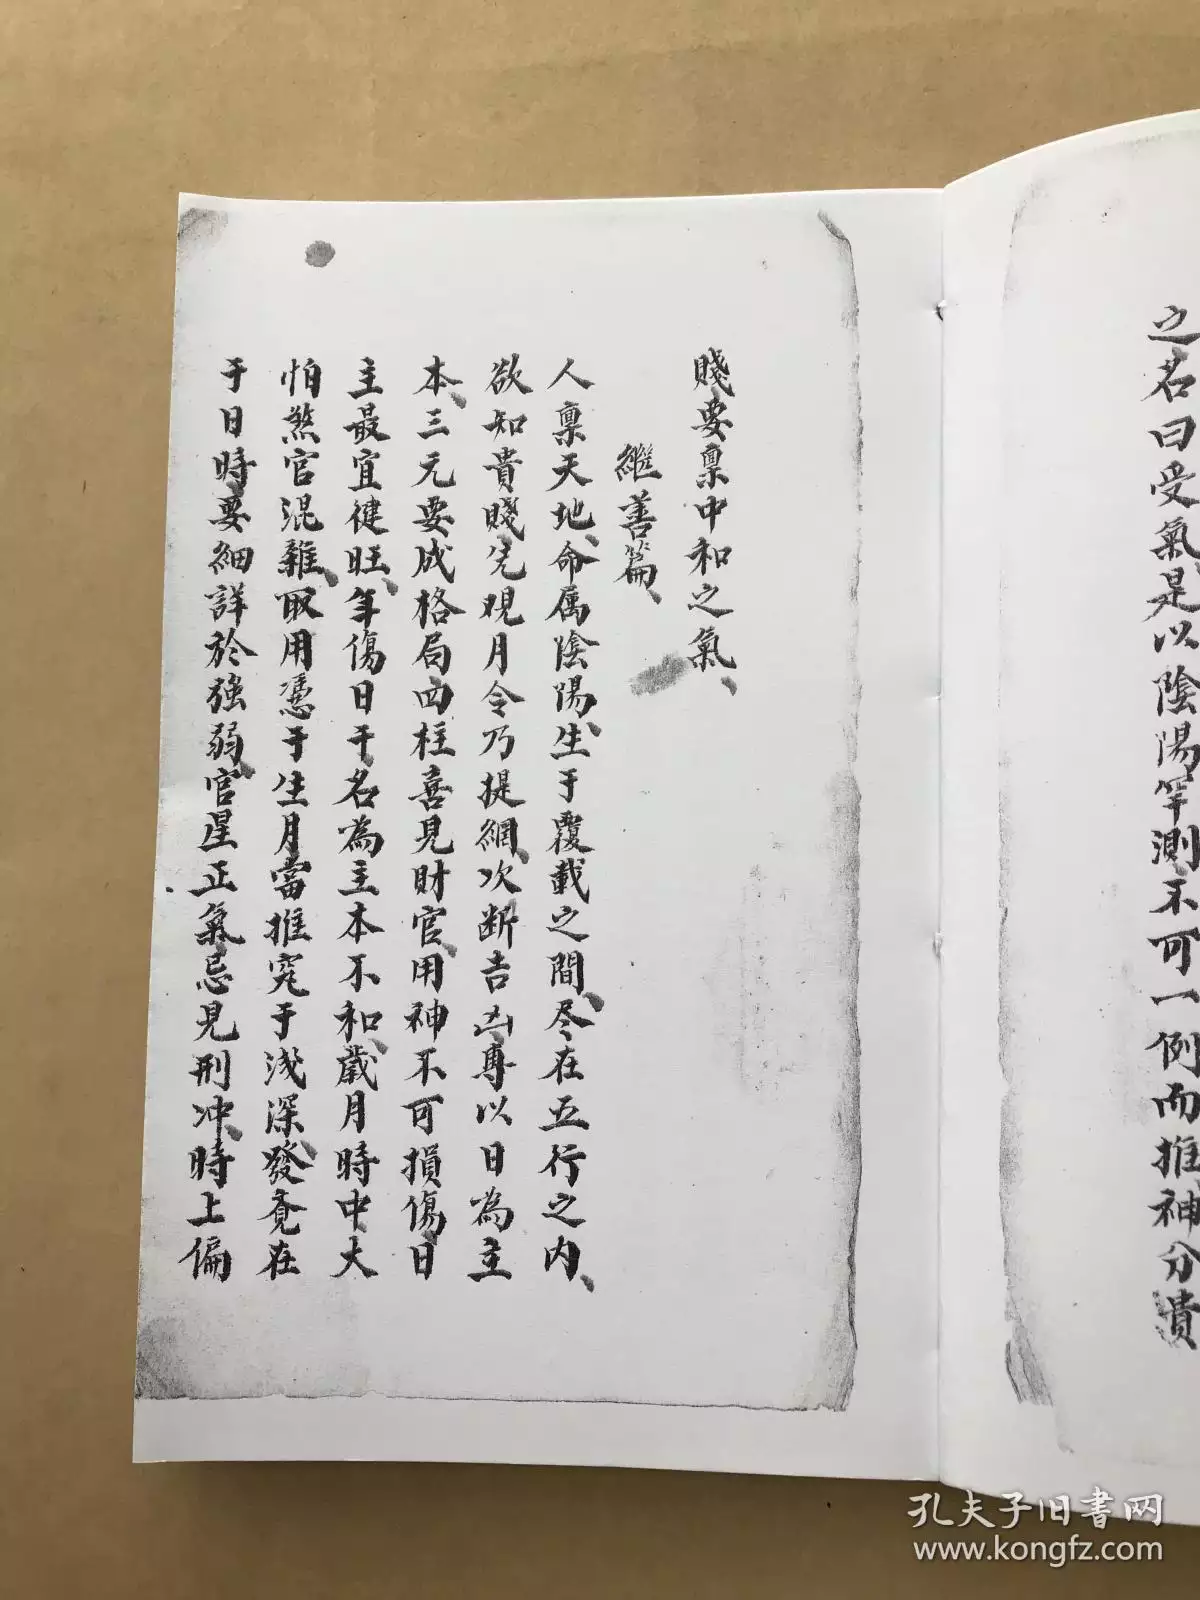 之名曰受氣是以陰陽罕測不可一例而推神分貴
賤要稟中和之氣、
繼善篇、
人稟天地、命属陰陽、生于覆載之間、尽在五行之内、
欲知貴賤先观月令乃提網、次断吉凶専以日為主
本、三元要成格局四柱喜見財官、用神不可損傷、日
主最宜健旺、年傷日干、名為主本不和、歲月時中、大
怕煞官混雜、取用憑于生月當推究于浅深、發竟在
于日時、要細詳於強弱、官星正氣忌見刑冲、時上偏
孔夫子旧書网
www.kongfz.com